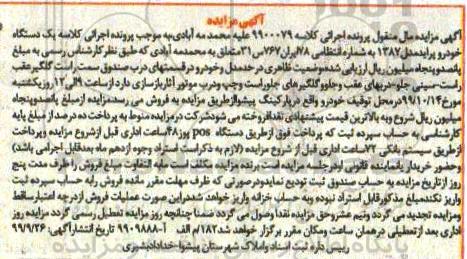 آگهی مزایده
آگهی مزایده مال منقول پرونده اجرائی کلاسه ۹۹۰۰۰۷۹ علیه محمد مه آبادی به موجب پرونده اجرائی کلاسه یک دستگاه
خودرو پراید مدل ۱۳۸۷ به شماره انتظامی ۷۸ ایران ۷۶۷ س ۳۱ متعلق به محمد مه آبادی که طبق نظر کارشناس رسمی به مبلغ
پانصد و پنجاه میلیون ریال ارزیابی شده وضعیت ظاهری در حد مدل و خودرو در قسمتهای درب صندوق سمت راست گلگیر عقب
راست سینی جلو دربهای عقب و جلو و گلگیر های جلو راست و چپ و درب موتور آثار بازسازی دارد از ساعت ۹ الی ۱۲ روز یکشنبه
مورخ ۹۹/۱۰/۱۴ در محل توقیف خودرو واقع در پارکینگ پیشوا از طریق مزایده به فروش می رسد مزایده از مبلغ پانصد و پنجاه
میلیون ریال شروع و به بالاترین قیمت پیشنهادی نقدا فروخته می شود شرکت در مزایده منوط به پرداخت ده درصد از مبلغ پایه
کارشناسی به حساب سپرده ثبت که پرداخت فوق از طریق دستگاه pos پوز ۴۸ ساعت اداری قبل از شروع مزایده و پرداخت
از طریق سیستم بانکی ۷۲ ساعت اداری قبل از شروع مزایده (لازم به ذکر است استرداد وجوه از دهم ماه بعد قابل اجرامی باشد)
و حضور خریدار یا نماینده قانونی او در جلسه مزایده است. برنده مزایده مکلف است مابه التفاوت مبلغ فروش را ظرف مدت پنج
روز از تاریخ مزایده به حساب صندوق ثبت تودیع نماید و در صورتی که ظرف مهلت مقرر مانده فروش را به حساب سپرده ثبت
واریز نکند مبلغ مذکور قابل استرداد نبوده و به حساب خزانه واریز خواهد شد در این صورت عملیات فروش از درجه اعتبار ساقط
و مزایده تجدید می گردد و نیم عشر و حق مزایده نقدا وصول می گردد ضمنا چنانچه روز مزایده تعطیل رسمی گردد مزایده روز
اداری بعد از تعطیلی در همان ساعت و مکان مقرر برگزار خواهد شد ۱۸۲/م الف آ-۹۹۰۹۸۸۸ تاریخ انتشار آگهی: ۹۹/۹/۲۶
رییس اداره ثبت اسناد و املاک شهرستان پیشوا-خداداد بشیری